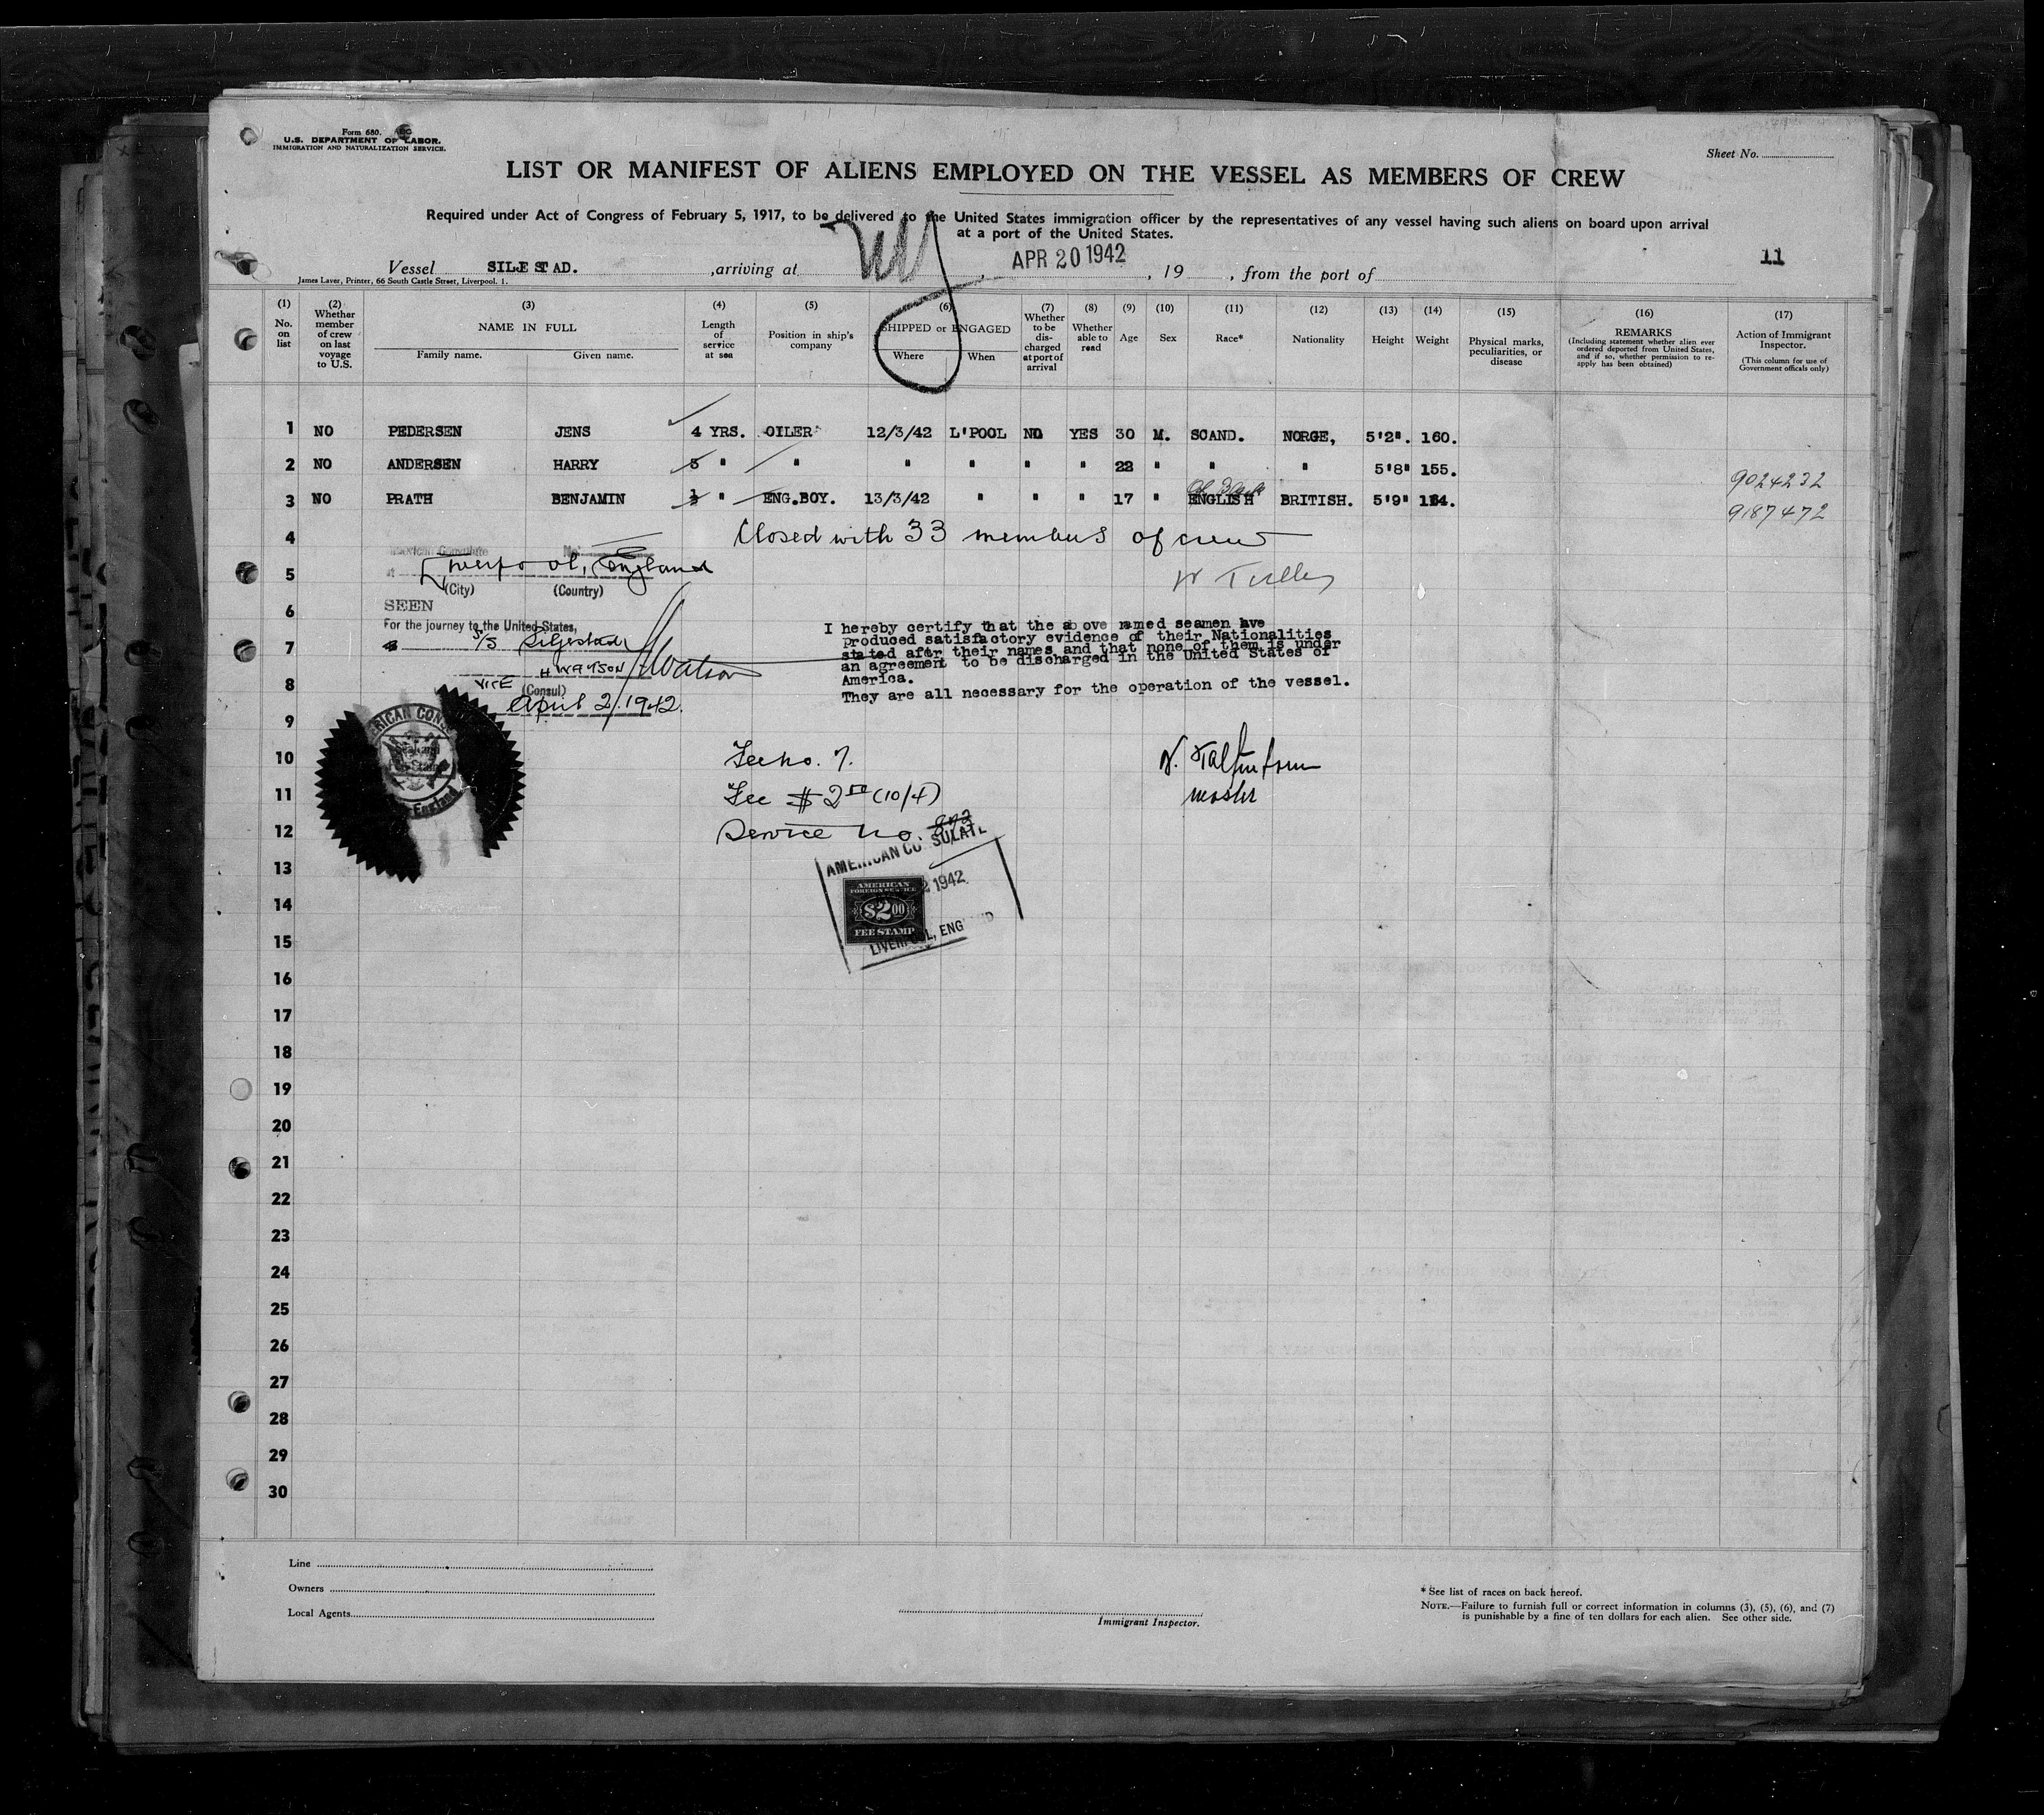 Form 680.
U.S. DEPARTMENT OF LABOR.
IMMIGRATION AND NATURALIZATION SERVICE.
Sheet No.
LIST OR MANIFEST OF ALIENS EMPLOYED ON THE VESSEL AS MEMBERS OF CREW
Required under Act of Congress of February 5, 1917, to be delivered to the United States immigration officer by the representatives of any vessel having such aliens on board upon arrival
at a port of the United States.
Vessel SILESTAD. , arriving at NY , APR 20 1942 , 19 , from the port of 11
James Laver, Printer, 66 South Castle Street, Liverpool. 1.
(1) No. on list
(2) Whether member of crew on last voyage to U.S.
(3) NAME IN FULL
Family name. Given name.
(4) Length of service at sea
(5) Position in ship's company
(6) SHIPPED or ENGAGED
Where When
(7) Whether to be discharged at port of arrival
(8) Whether able to read
(9) Age
(10) Sex
(11) Race*
(12) Nationality
(13) Height
(14) Weight
(15) Physical marks, peculiarities, or disease
(16) REMARKS
(Including statement whether alien ever ordered deported from United States, and if so, whether permission to re-apply has been obtained)
(17) Action of Immigrant Inspector.
(This column for use of Government officals only)
1 NO PEDERSEN JENS 4 YRS. OILER 12/3/42 L'POOL NO YES 30 M. SCAND. NORGE, 5'2". 160.
2 NO ANDERSEN HARRY 5 " " " " " " 22 " " " 5'8" 155.
9024232
3 NO PRATH BENJAMIN " ENG.BOY. 13/3/42 " " " 17 " ENGLISH BRITISH. 5'9"
9187472
4 Closed with 33 members of crew
American Consulate No.
5 Liverpool, England
(City) (Country)
6 SEEN
For the journey to the United States,
7 S/S Siljestad
H WATSON HWatson
8 VICE (Consul)
April 2, 1942.
I hereby certify that the above named seamen have
produced satisfactory evidence of their Nationalities
stated after their names and that none of them is under
an agreement to be discharged in the United States of
America.
They are all necessary for the operation of the vessel.
9
AMERICAN CONS
England
10 Fee no. 7.
11 Fee $2 00 (10/4)
master
12 Service no.
AMERICAN CONSULATE
13
2 1942
14 AMERICAN
FOREIGN SERVICE
$2.00
FEE STAMP
LIVERPOOL, ENGLAND
15
16
17
18
19
20
21
22
23
24
25
26
27
28
29
30
Line
Owners
Local Agents
Immigrant Inspector.
* See list of races on back hereof.
NOTE.—Failure to furnish full or correct information in columns (3), (5), (6), and (7)
is punishable by a fine of ten dollars for each alien. See other side.